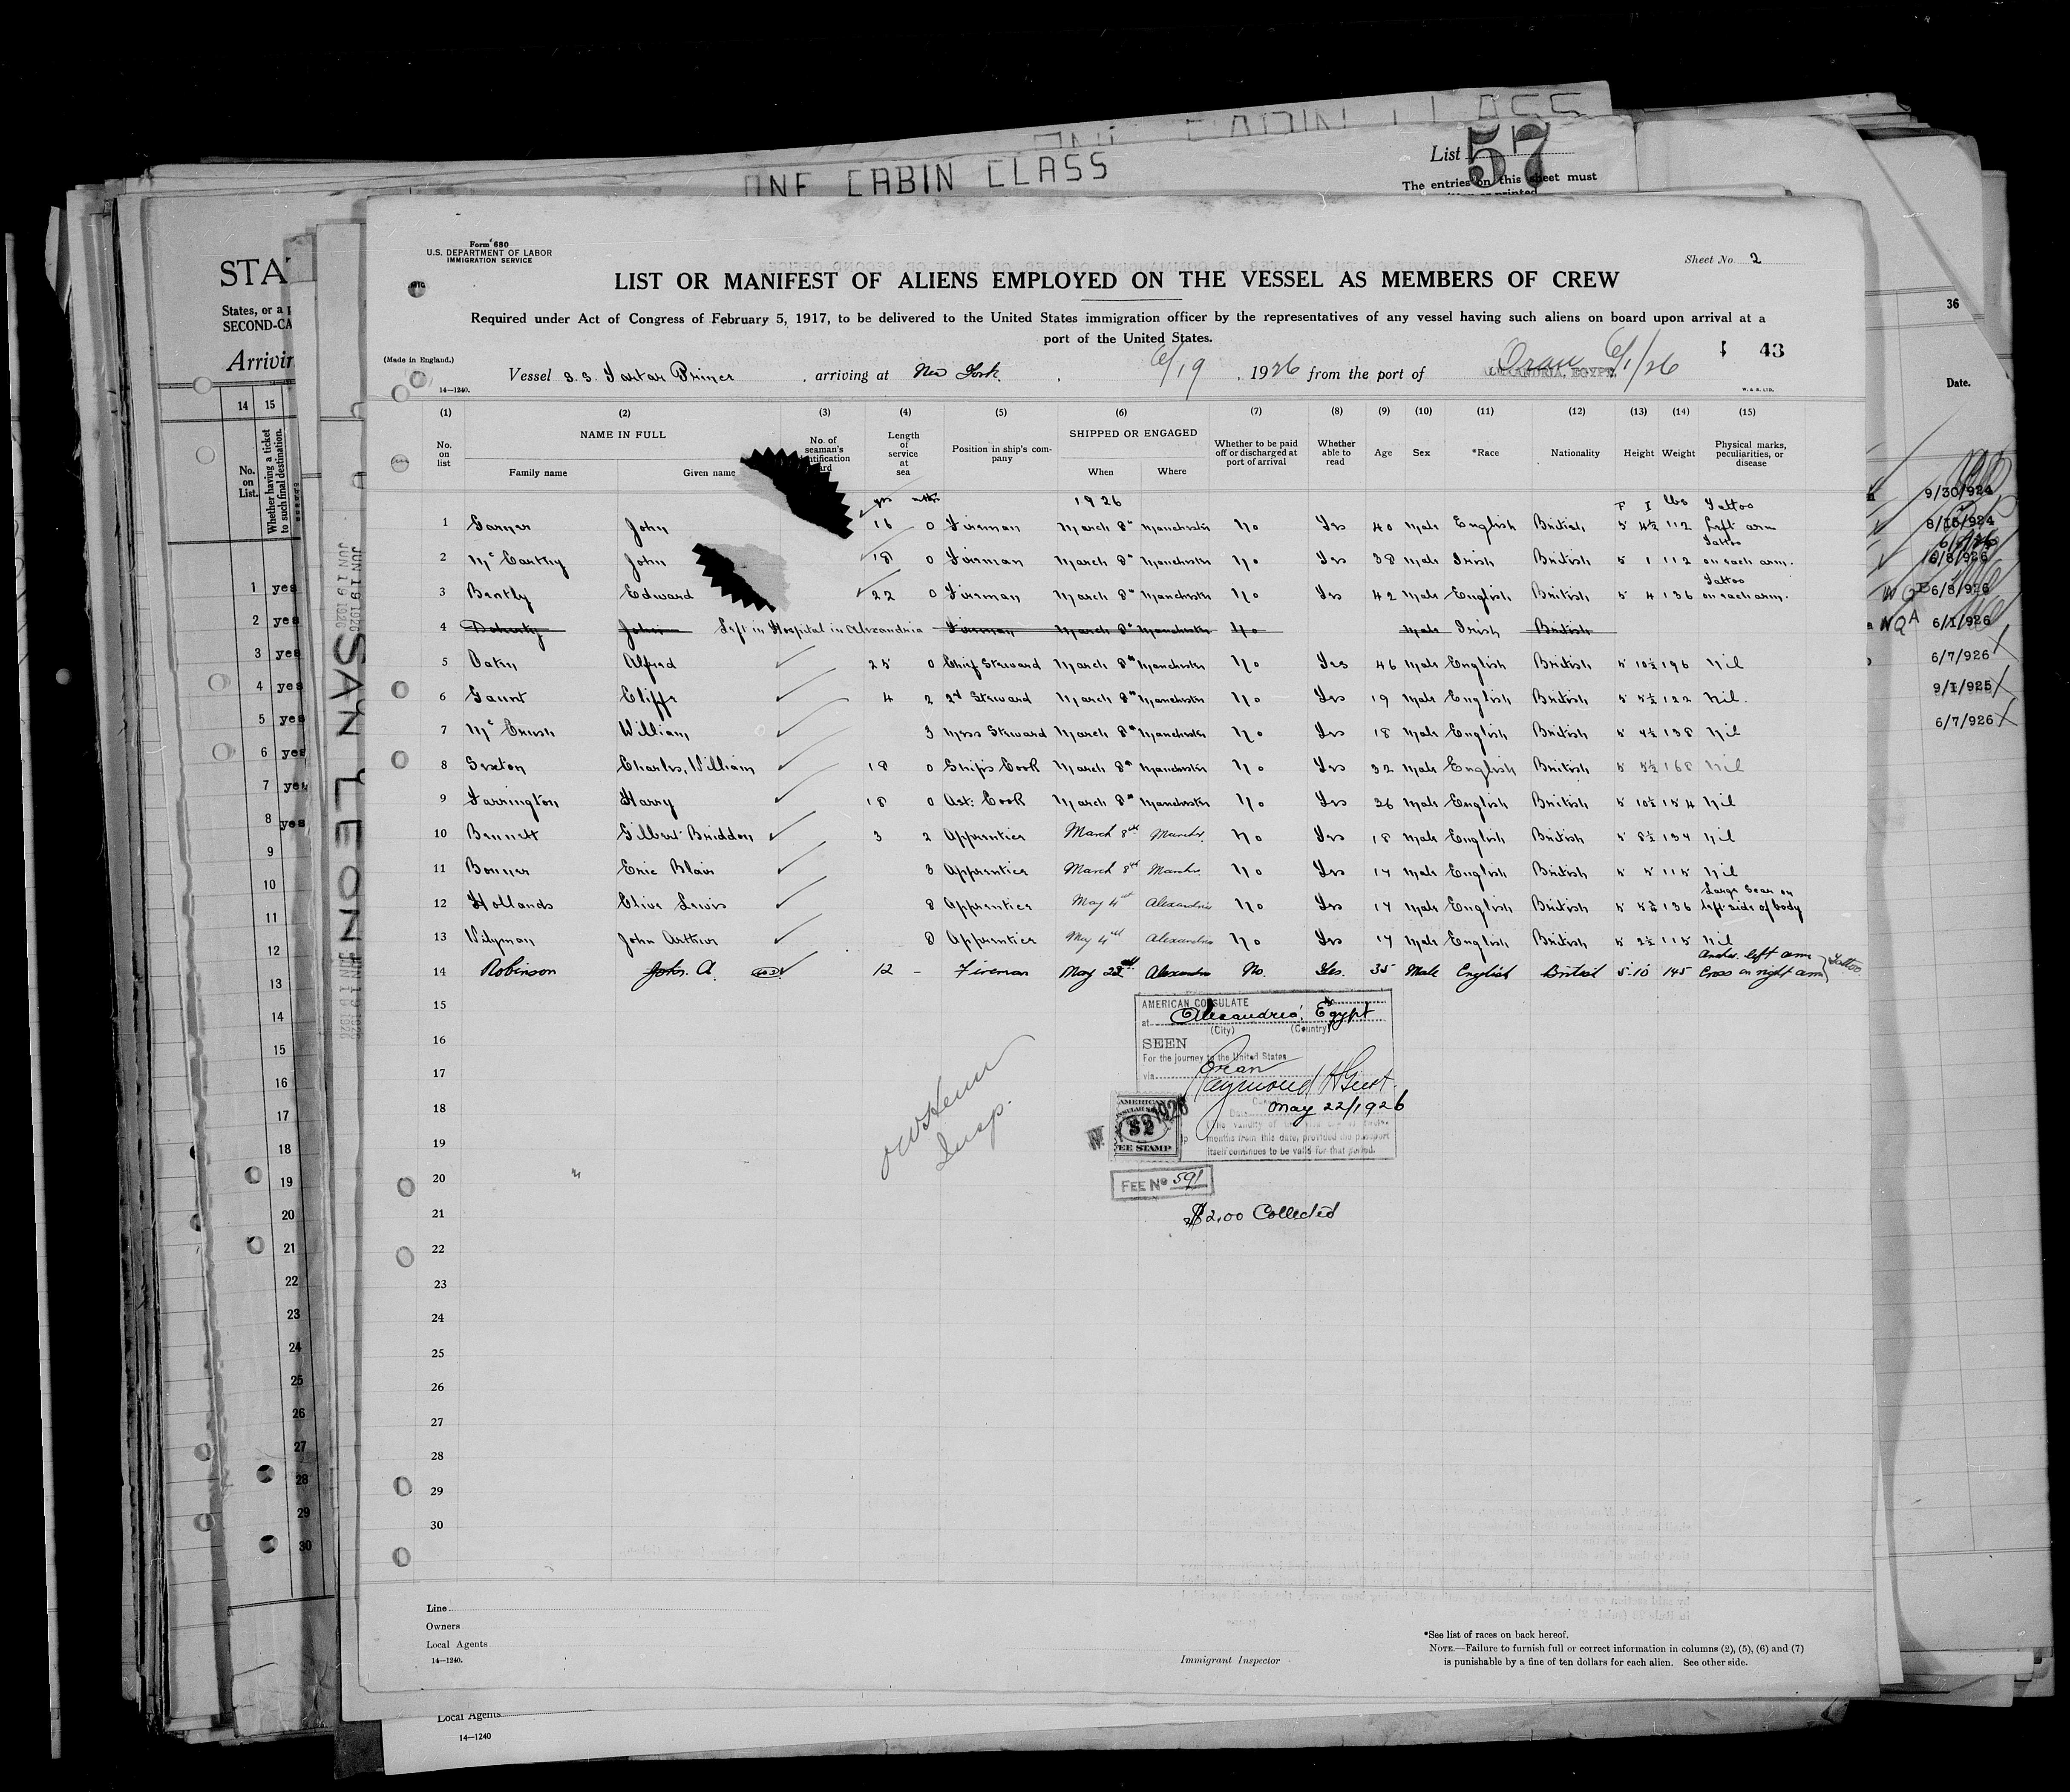 ONE CABIN CLASS
ONE CABIN CLASS
List 57
The entries on this sheet must
Form 680
U.S. DEPARTMENT OF LABOR
IMMIGRATION SERVICE
Sheet No 2
LIST OR MANIFEST OF ALIENS EMPLOYED ON THE VESSEL AS MEMBERS OF CREW
Required under Act of Congress of February 5, 1917, to be delivered to the United States immigration officer by the representatives of any vessel having such aliens on board upon arrival at a
port of the United States.
(Made in England.)
43
Vessel S.S. Tartar Prince, arriving at New York, 6/19, 1926 from the port of ALEXANDRIA, EGYPT. Oran 6/1/26
14—1240.
W. & S. LTD.
(1) (2) (3) (4) (5) (6) (7) (8) (9) (10) (11) (12) (13) (14) (15)
No. on list
NAME IN FULL
Family name Given name
No. of seaman's
Length of service at sea
Position in ship's company
SHIPPED OR ENGAGED
When Where
Whether to be paid off or discharged at port of arrival
Whether able to read
Age Sex *Race Nationality Height Weight
Physical marks, peculiarities, or disease
yrs mths 1926 F I lbs
1 Garner John 16 0 Fireman March 8th Manchester No Yes 40 Male English British 5 4½ 112 Tattoo left arm
2 McCarthy John 18 0 Fireman March 8th Manchester No Yes 38 Male Irish British 5 1 112 Tattoo on each arm.
3 Bently Edward 22 0 Fireman March 8th Manchester No Yes 42 Male English British 5 4 136 Tattoo on each arm.
4 Doherty John Left in Hospital in Alexandria Fireman March 8th Manchester No Male Irish British
5 Oaten Alfred 25 0 Chief Steward March 8th Manchester No Yes 46 Male English British 5 10½ 196 Nil
6 Gaunt Cliffe 4 2 2nd Steward March 8th Manchester No Yes 19 Male English British 5 5½ 122 Nil.
7 William 3 Mess Steward March 8th Manchester No Yes 18 Male English British 5 4½ 138 Nil
8 Sexton Charles, William 18 0 Ship's Cook March 8th Manchester No Yes 32 Male English British 5 5½ 168 Nil
9 Farrington Harry 18 0 Ast: Cook March 8th Manchester No Yes 36 Male English British 5 10½ 154 Nil
10 Bennett Gilbert Briddon 3 2 Apprentice March 8th Manchr. No Yes 18 Male English British 5 8½ 134 Nil
11 Bonner Eric Blair 8 Apprentice March 8th Manchr. No Yes 17 Male English British 5 5 115 Nil
12 Hollands Clive Lewis 8 Apprentice May 4th Alexandria No Yes 17 Male English British 5 5¾ 136 Large Scar on left side of body
13 Wilyman John Arthur 8 Apprentice May 4th Alexandria No Yes 17 Male English British 5 2½ 115 Nil
14 Robinson John. A. 12 - Fireman May 22nd Alexandria No. Yes. 35 Male English British 5·10 145 Anchor left arm Cross on right arm } Tattoo
15
16
17
18
19
20
21
22
23
24
25
26
27
28
29
30
AMERICAN CONSULATE
at Alexandria, Egypt
(City) (Country)
SEEN
For the journey to the United States
via Oran
Raymond H Geist
May 22/1926
The validity of this visa
months from this date, provided the passport
itself continues to be valid for that period.
AMERICAN
$2
1926
FEE STAMP
FEE No 591
$2.00 Collected
Insp.
Line
Owners
Local Agents
14—1240.
Immigrant Inspector
*See list of races on back hereof.
NOTE.—Failure to furnish full or correct information in columns (2), (5), (6) and (7)
is punishable by a fine of ten dollars for each alien. See other side.
Local Agents
14—1240
STA
States, or a p
SECOND-CA
Arrivin
14 15
No. on List.
Whether having a ticket to such final destination.
1 yes
2 yes
3 yes
4 yes
5 yes
6 yes
7 yes
8 yes
9
10
11
12
13
14
15
16
17
18
19
20
21
22
23
24
25
26
27
28
29
30
JUN 19 1926
SAN LEONE
36
Date.
9/30/924
8/15/924
6/8/926
6/8/926
6/1/926
6/7/926
9/1/925
6/7/926